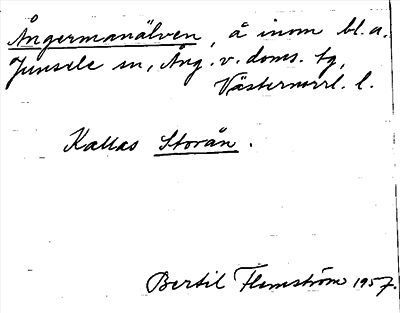 Ångermanälven, å inom bl.a.
Junsele sn, Ång. v. doms. tg,
Västernorrl. l.
Kallas Storån.
Bertil Flemström 1957.